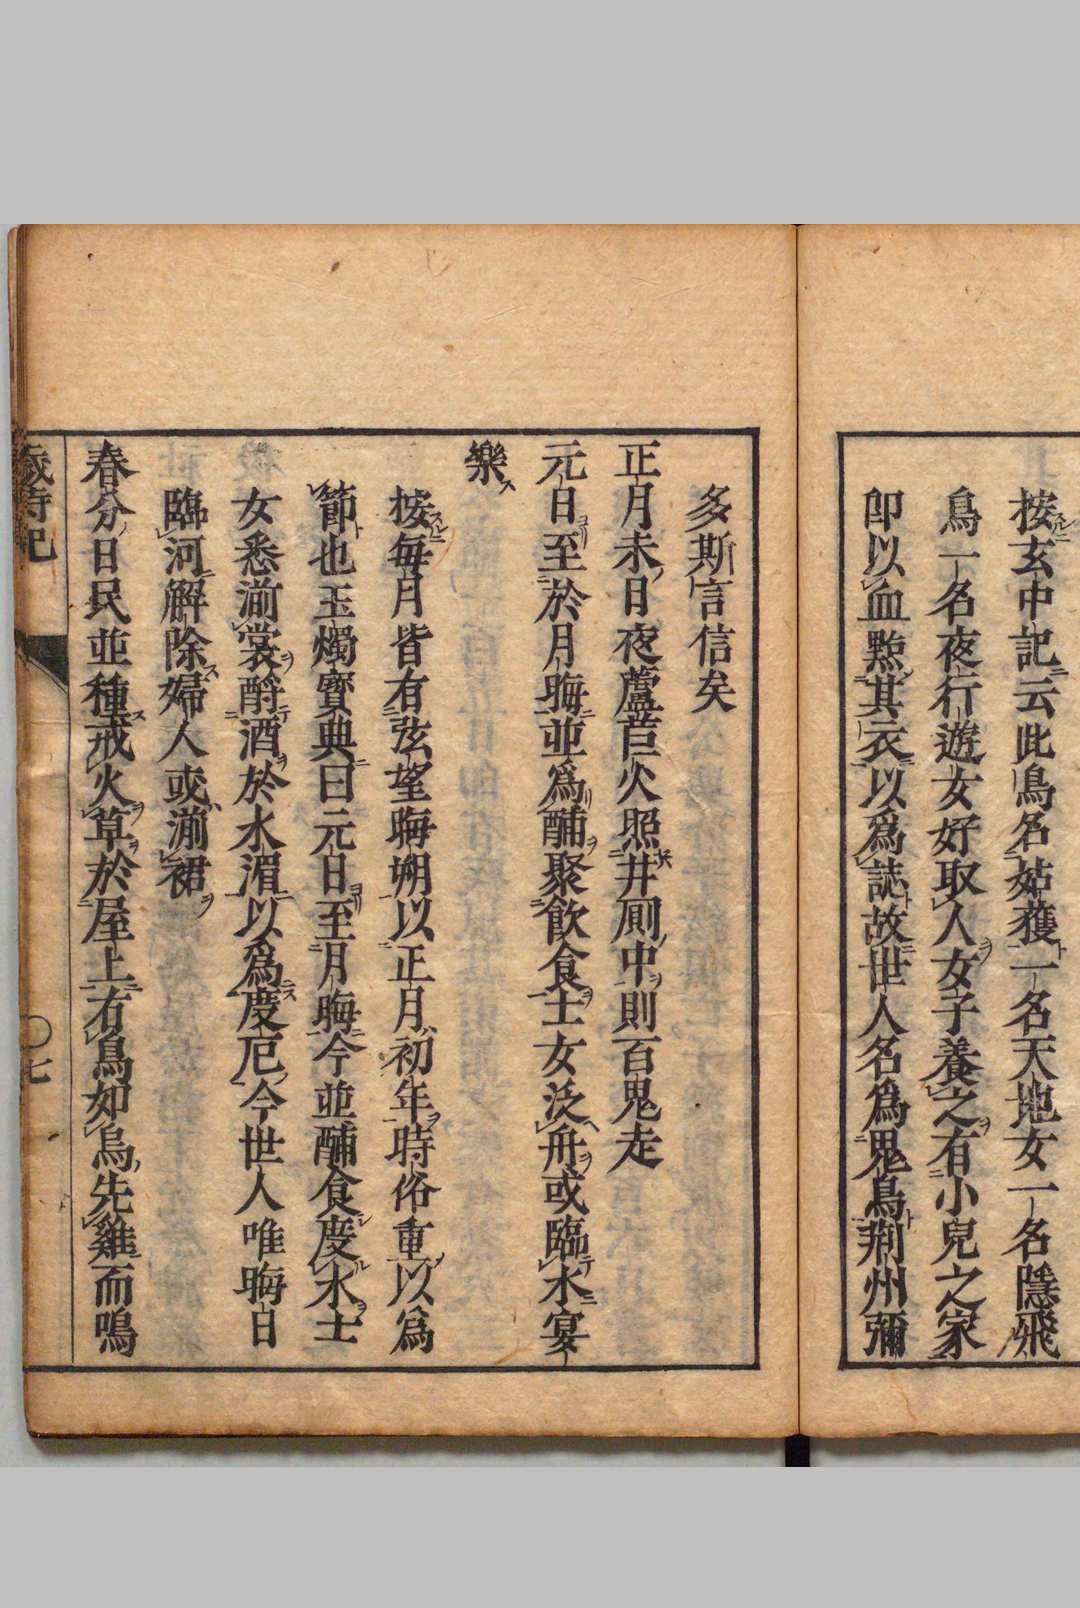 按玄中記云此鳥名姑獲一名天地女一名隱飛
鳥一名夜行遊女好取人女子養之有小兒之家
即以血㸃其衣以爲誌故世人名爲鬼鳥荆州彌
多斯言信矣
正月未日夜蘆苣火照井厠中則百鬼走
元日至於月晦並爲酺聚飲食士女泛舟或臨水宴
樂
按每月皆有弦望晦朔以正月初年時俗重以爲
節也玉燭寳典曰元日至月晦今並酺食度水士
女悉湔裳酹酒於水湄以爲度厄今世人唯晦日
臨河解除婦人或湔裙
春分日民並種戒火草於屋上有鳥如烏先雞而鳴
歲時記
〇七